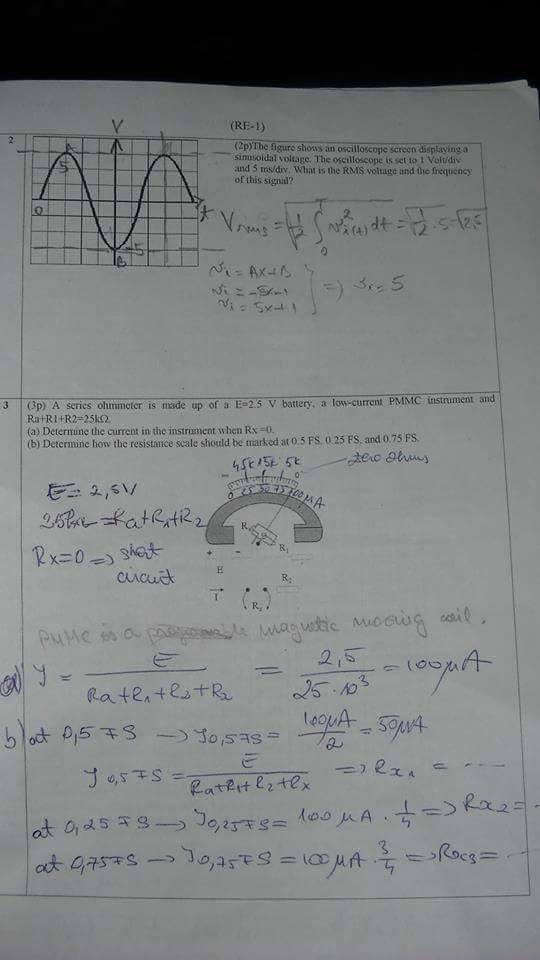 (RE-1)
2
V
(2p)The figure shows an oscilloscope screen displaying a
sinusoidal voltage. The oscilloscope is set to 1 Volt/div
and 5 ms/div. What is the RMS voltage and the frequency
of this signal?
A
5
0
t
-5
B
Vrms = √(1/T ∫₀ᵀ vi²(t) dt) = √(1/2 · 5) = √2,5
vi = Ax+B
vi = -5x-1
vi = 5x+1
} => = 5
3
(3p) A series ohmmeter is made up of a E=2.5 V battery, a low-current PMMC instrument and
Ra+R1+R2=25kΩ.
(a) Determine the current in the instrument when Rx =0.
(b) Determine how the resistance scale should be marked at 0.5 FS, 0.25 FS, and 0.75 FS.
45k 15k 5k
0
zero ohms
0 25 50 75 100 μA
E = 2,5V
= Ra+R1+R2
Rx=0 => short
circuit
R1
+ -
E
R2
I
Rx
PMMC is a magnetic moving coil.
a) I = E / (Ra+R1+R2+R2) = 2,5 / (25·10³) = 100μA
b) at 0,5 FS → I0,5FS = 100μA / 2 = 50μA
I 0,5FS = E / (Ra+R1+R2+Rx) => Rx1 = ----
at 0,25 FS → I0,25FS = 100 μA · 1/4 => Rx2 = -
at 0,75FS → I0,75FS = 100μA · 3/4 => Rx3 = ---